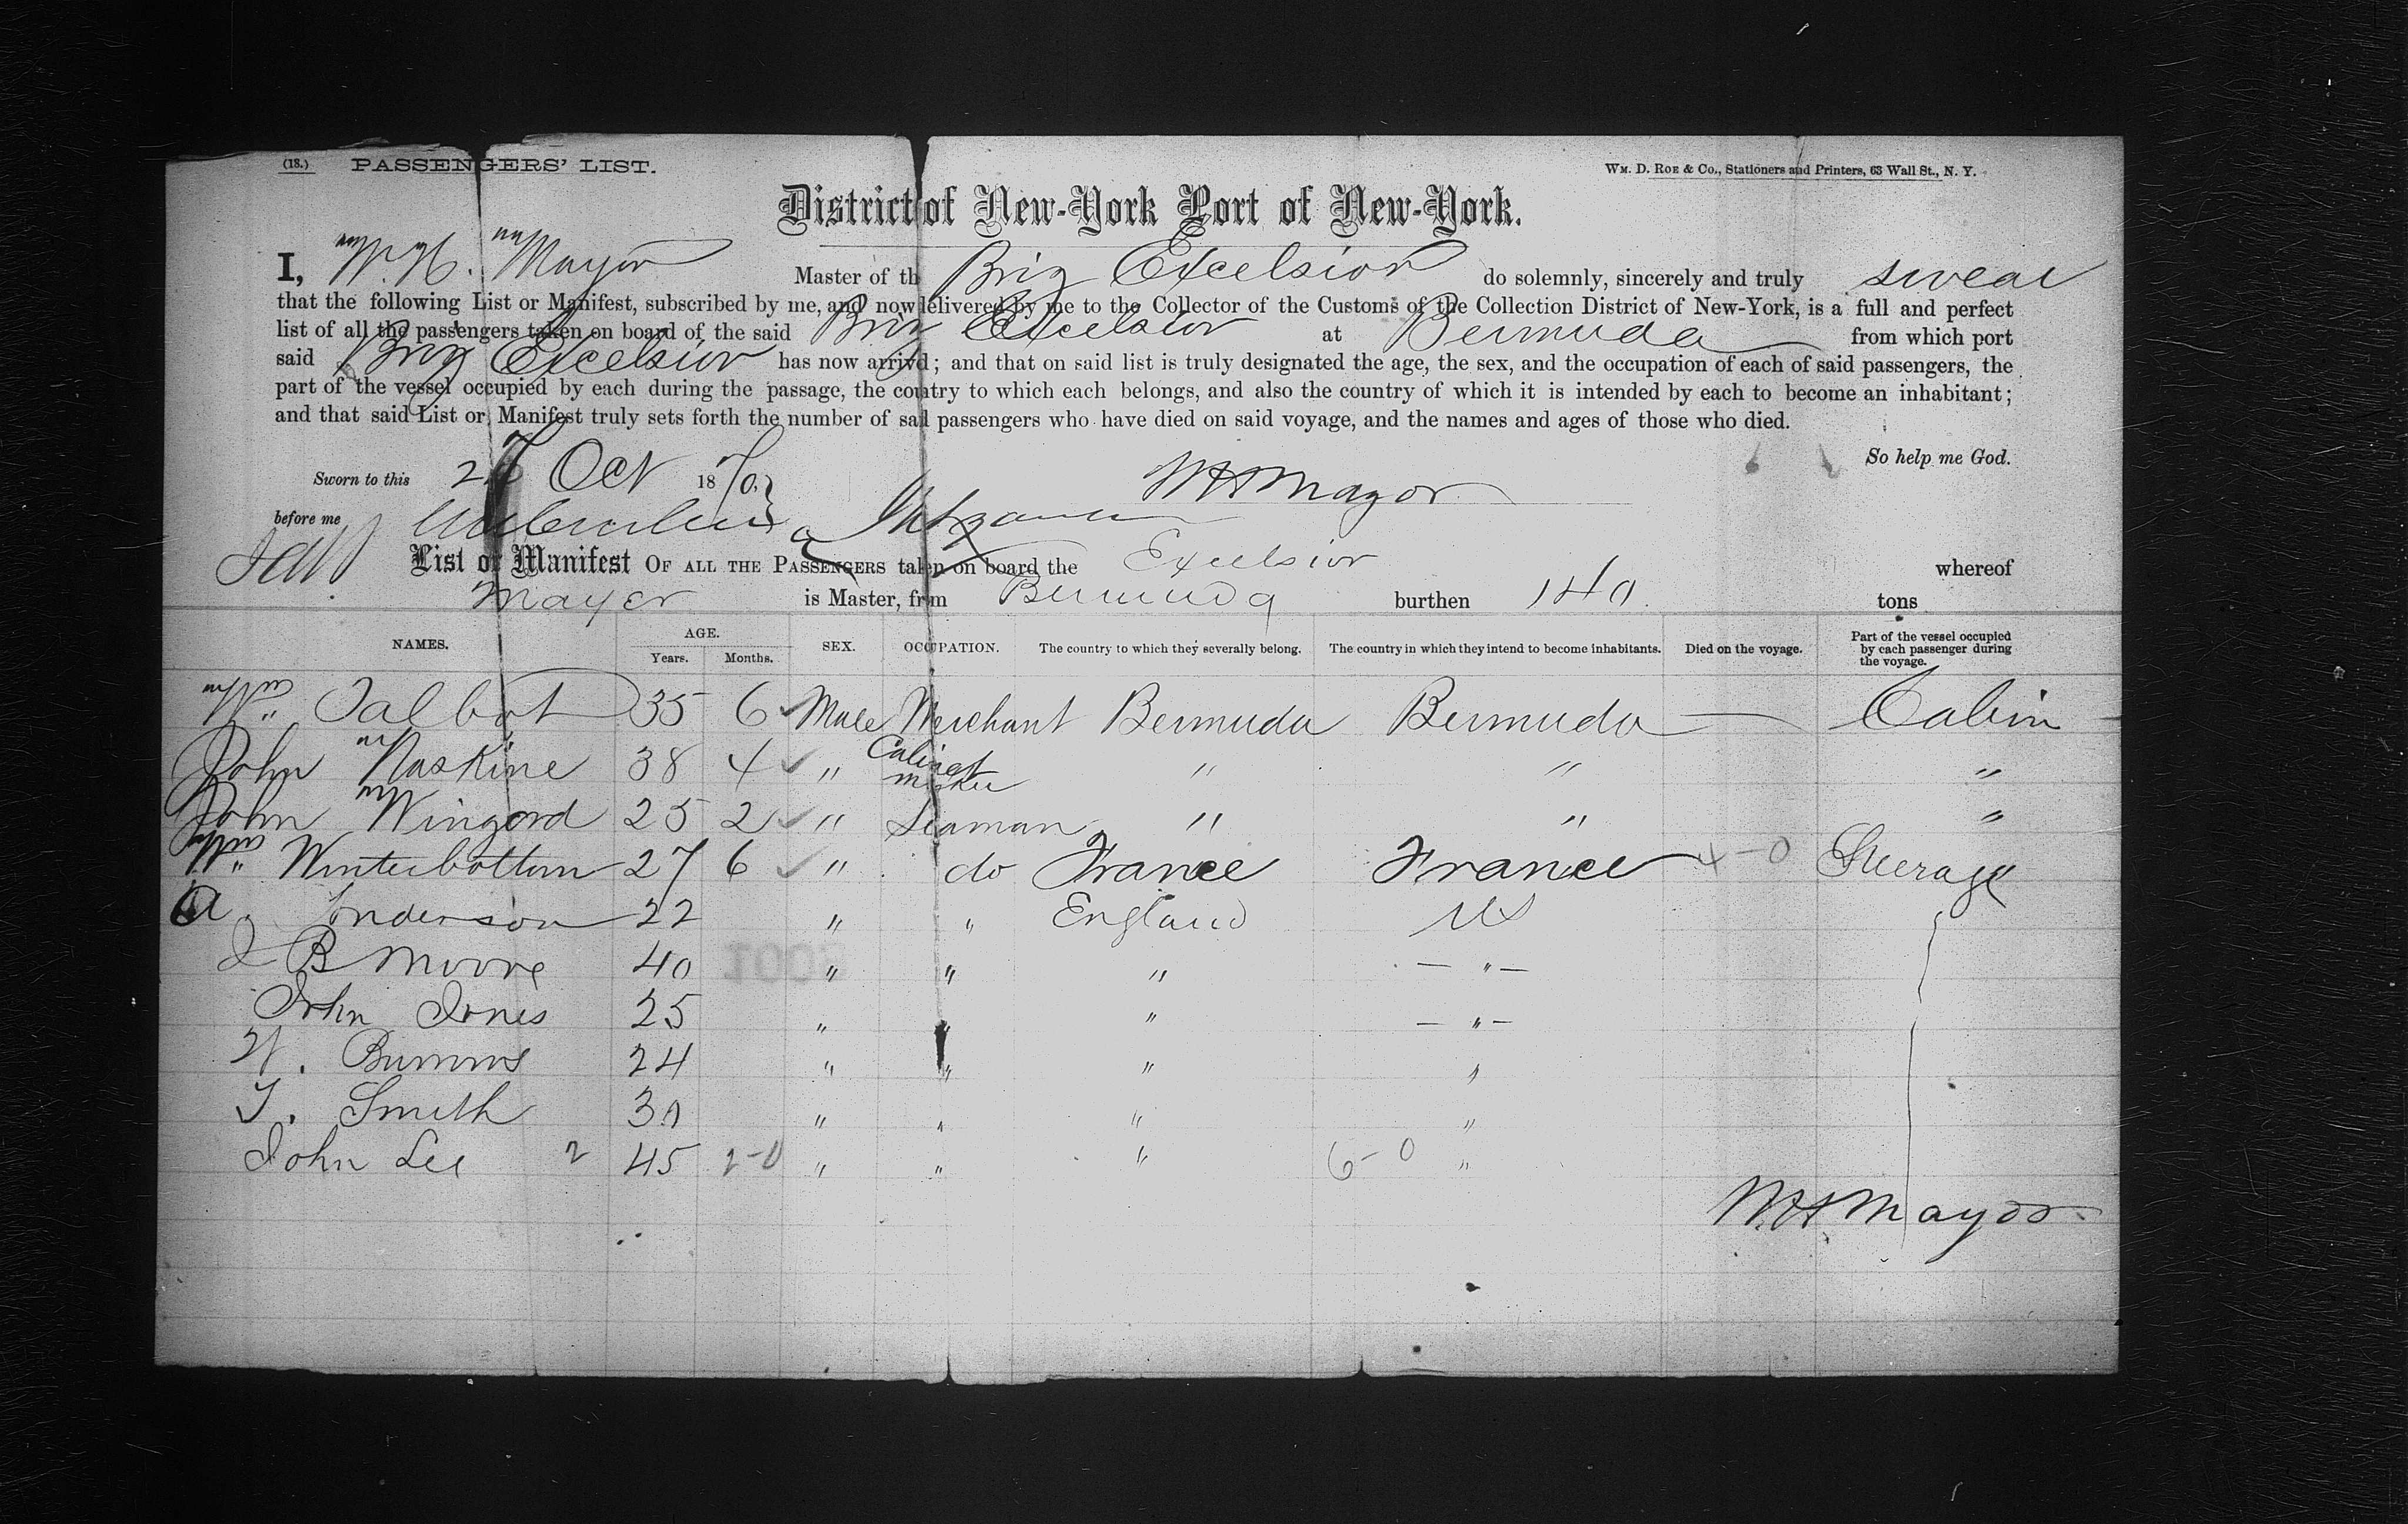 (18.) PASSENGERS' LIST.
Wm. D. Roe & Co., Stationers and Printers, 63 Wall St., N. Y.
District of New-York Port of New-York.
I, W. H. Mayor Master of th Brig Excelsior do solemnly, sincerely and truly swear
that the following List or Manifest, subscribed by me, and now delivered by me to the Collector of the Customs of the Collection District of New-York, is a full and perfect
list of all the passengers taken on board of the said Brig Excelsior at Bermuda from which port
said Brig Excelsior has now arrivd; and that on said list is truly designated the age, the sex, and the occupation of each of said passengers, the
part of the vessel occupied by each during the passage, the country to which each belongs, and also the country of which it is intended by each to become an inhabitant;
and that said List or Manifest truly sets forth the number of said passengers who have died on said voyage, and the names and ages of those who died.
So help me God.
Sworn to this Oct 1870 W H Mayor
before me
List or Manifest OF ALL THE PASSENGERS taken on board the Excelsior whereof
Mayor is Master, from Bermuda burthen 140 tons
NAMES. AGE. Years. Months. SEX. OCCUPATION. The country to which they severally belong. The country in which they intend to become inhabitants. Died on the voyage. Part of the vessel occupied by each passenger during the voyage.
Wm Talbot 35 6 Male Merchant Bermuda Bermuda — Cabin
John Naskine 38 4 " Cabinet maker " " "
John Wingord 25 2 " Seaman " " "
Wm Winterbottom 27 6 " do France France 4-0 Steerage
A. Anderson 22 " " England US
J B Moore 40 " " " — " —
John Jones 25 " " " — " —
W. 24 " " " "
T. Smith 30 " " " "
John Lee 2 45 2-0 " " " 6-0 "
W.H. Mayor